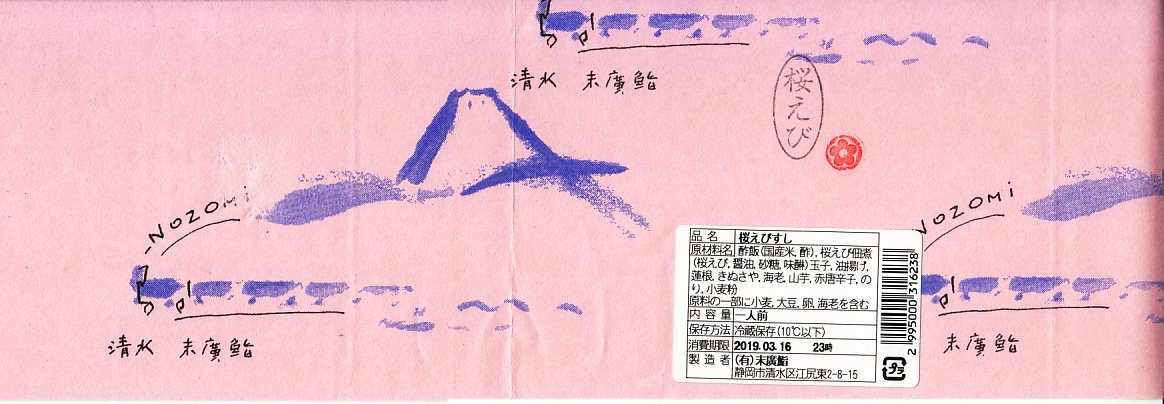 清水 末廣鮨
桜えび
NOZOMi
清水 末廣鮨
NOZOMi
末廣鮨
品名 桜えびすし
原材料名 酢飯(国産米、酢)、桜えび佃煮
(桜えび、醤油、砂糖、味醂)玉子、油揚げ、
蓮根、きぬさや、海老、山芋、赤唐辛子、の
り、小麦粉
原料の一部に小麦、大豆、卵、海老を含む
内容量 一人前
保存方法 冷蔵保存(10℃以下)
消費期限 2019.03.16 23時
製造者 (有)末廣鮨
静岡市清水区江尻東2-8-15
2995000316238
プラ